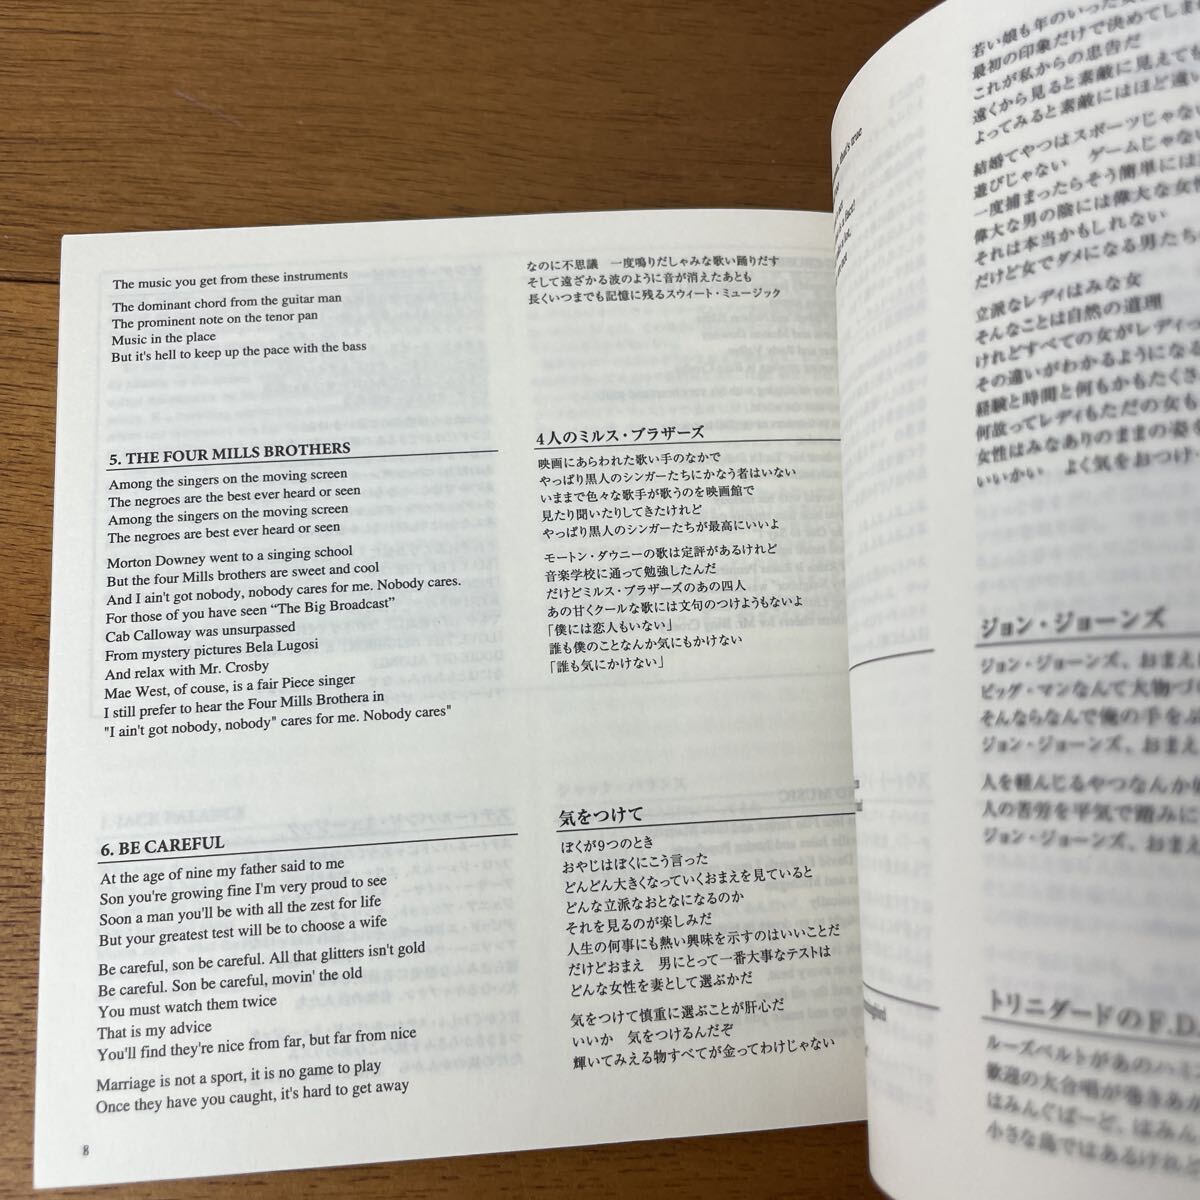 The music you get from these instruments
The dominant chord from the guitar man
The prominent note on the tenor pan
Music in the place
But it's hell to keep up the pace with the bass
5. THE FOUR MILLS BROTHERS
Among the singers on the moving screen
The negroes are the best ever heard or seen
Among the singers on the moving screen
The negroes are best ever heard or seen
Morton Downey went to a singing school
But the four Mills brothers are sweet and cool
And I ain't got nobody, nobody cares for me. Nobody cares.
For those of you have seen “The Big Broadcast”
Cab Calloway was unsurpassed
From mystery pictures Bela Lugosi
And relax with Mr. Crosby
Mae West, of couse, is a fair Piece singer
I still prefer to hear the Four Mills Brothera in
"I ain't got nobody, nobody" cares for me. Nobody cares"
6. BE CAREFUL
At the age of nine my father said to me
Son you're growing fine I'm very proud to see
Soon a man you'll be with all the zest for life
But your greatest test will be to choose a wife
Be careful, son be careful. All that glitters isn't gold
Be careful. Son be careful, movin' the old
You must watch them twice
That is my advice
You'll find they're nice from far, but far from nice
Marriage is not a sport, it is no game to play
Once they have you caught, it's hard to get away
8
なのに不思議　一度鳴りだしゃみな歌い踊りだす
そして遠ざかる波のように音が消えたあとも
長くいつまでも記憶に残るスウィート・ミュージック
4人のミルス・ブラザーズ
映画にあらわれた歌い手のなかで
やっぱり黒人のシンガーたちにかなう者はいない
いままで色々な歌手が歌うのを映画館で
見たり聞いたりしてきたけれど
やっぱり黒人のシンガーたちが最高にいいよ
モートン・ダウニーの歌は定評があるけれど
音楽学校に通って勉強したんだ
だけどミルス・ブラザーズのあの四人
あの甘くクールな歌には文句のつけようもないよ
「僕には恋人もいない」
誰も僕のことなんか気にもかけない
「誰も気にかけない」
気をつけて
ぼくが9つのとき
おやじはぼくにこう言った
どんどん大きくなっていくおまえを見ていると
どんな立派なおとなになるのか
それを見るのが楽しみだ
人生の何事にも熱い興味を示すのはいいことだ
だけどおまえ　男にとって一番大事なテストは
どんな女性を妻として選ぶかだ
気をつけて慎重に選ぶことが肝心だ
いいか　気をつけるんだぞ
輝いてみえる物すべてが金ってわけじゃない
that's true
若い娘も年のいった女
最初の印象だけで決めてしま
これが私からの忠告だ
遠くから見ると素敵に見えても
よってみると素敵にはほど遠
結婚てやつはスポーツじゃない
遊びじゃない　ゲームじゃない
一度捕まったらそう簡単には
偉大な男の陰には偉大な女性
それは本当かもしれない
だけど女でダメになる男たち
立派なレディはみな女
そんなことは自然の道理
けれどすべての女がレディ
その違いがわかるようになる
経験と時間と何もかもたくさ
何放ってレディもただの女も
女性はみなありのままの姿を
いいかい　よく気をおつけ
ジョン・ジョーンズ
ジョン・ジョーンズ、おまえ
ビッグ・マンなんて大物づ
そんならなんで俺の手をぶ
ジョン・ジョーンズ、おまえ
人を軽んじるやつなんか
人の苦労を平気で踏みに
ジョン・ジョーンズ、おまえ
トリニダードのF.D
ルーズベルトがあのハミ
歓迎の大合唱が巻きあが
はみんぐばーど、はみん
小さな島ではあるけれど